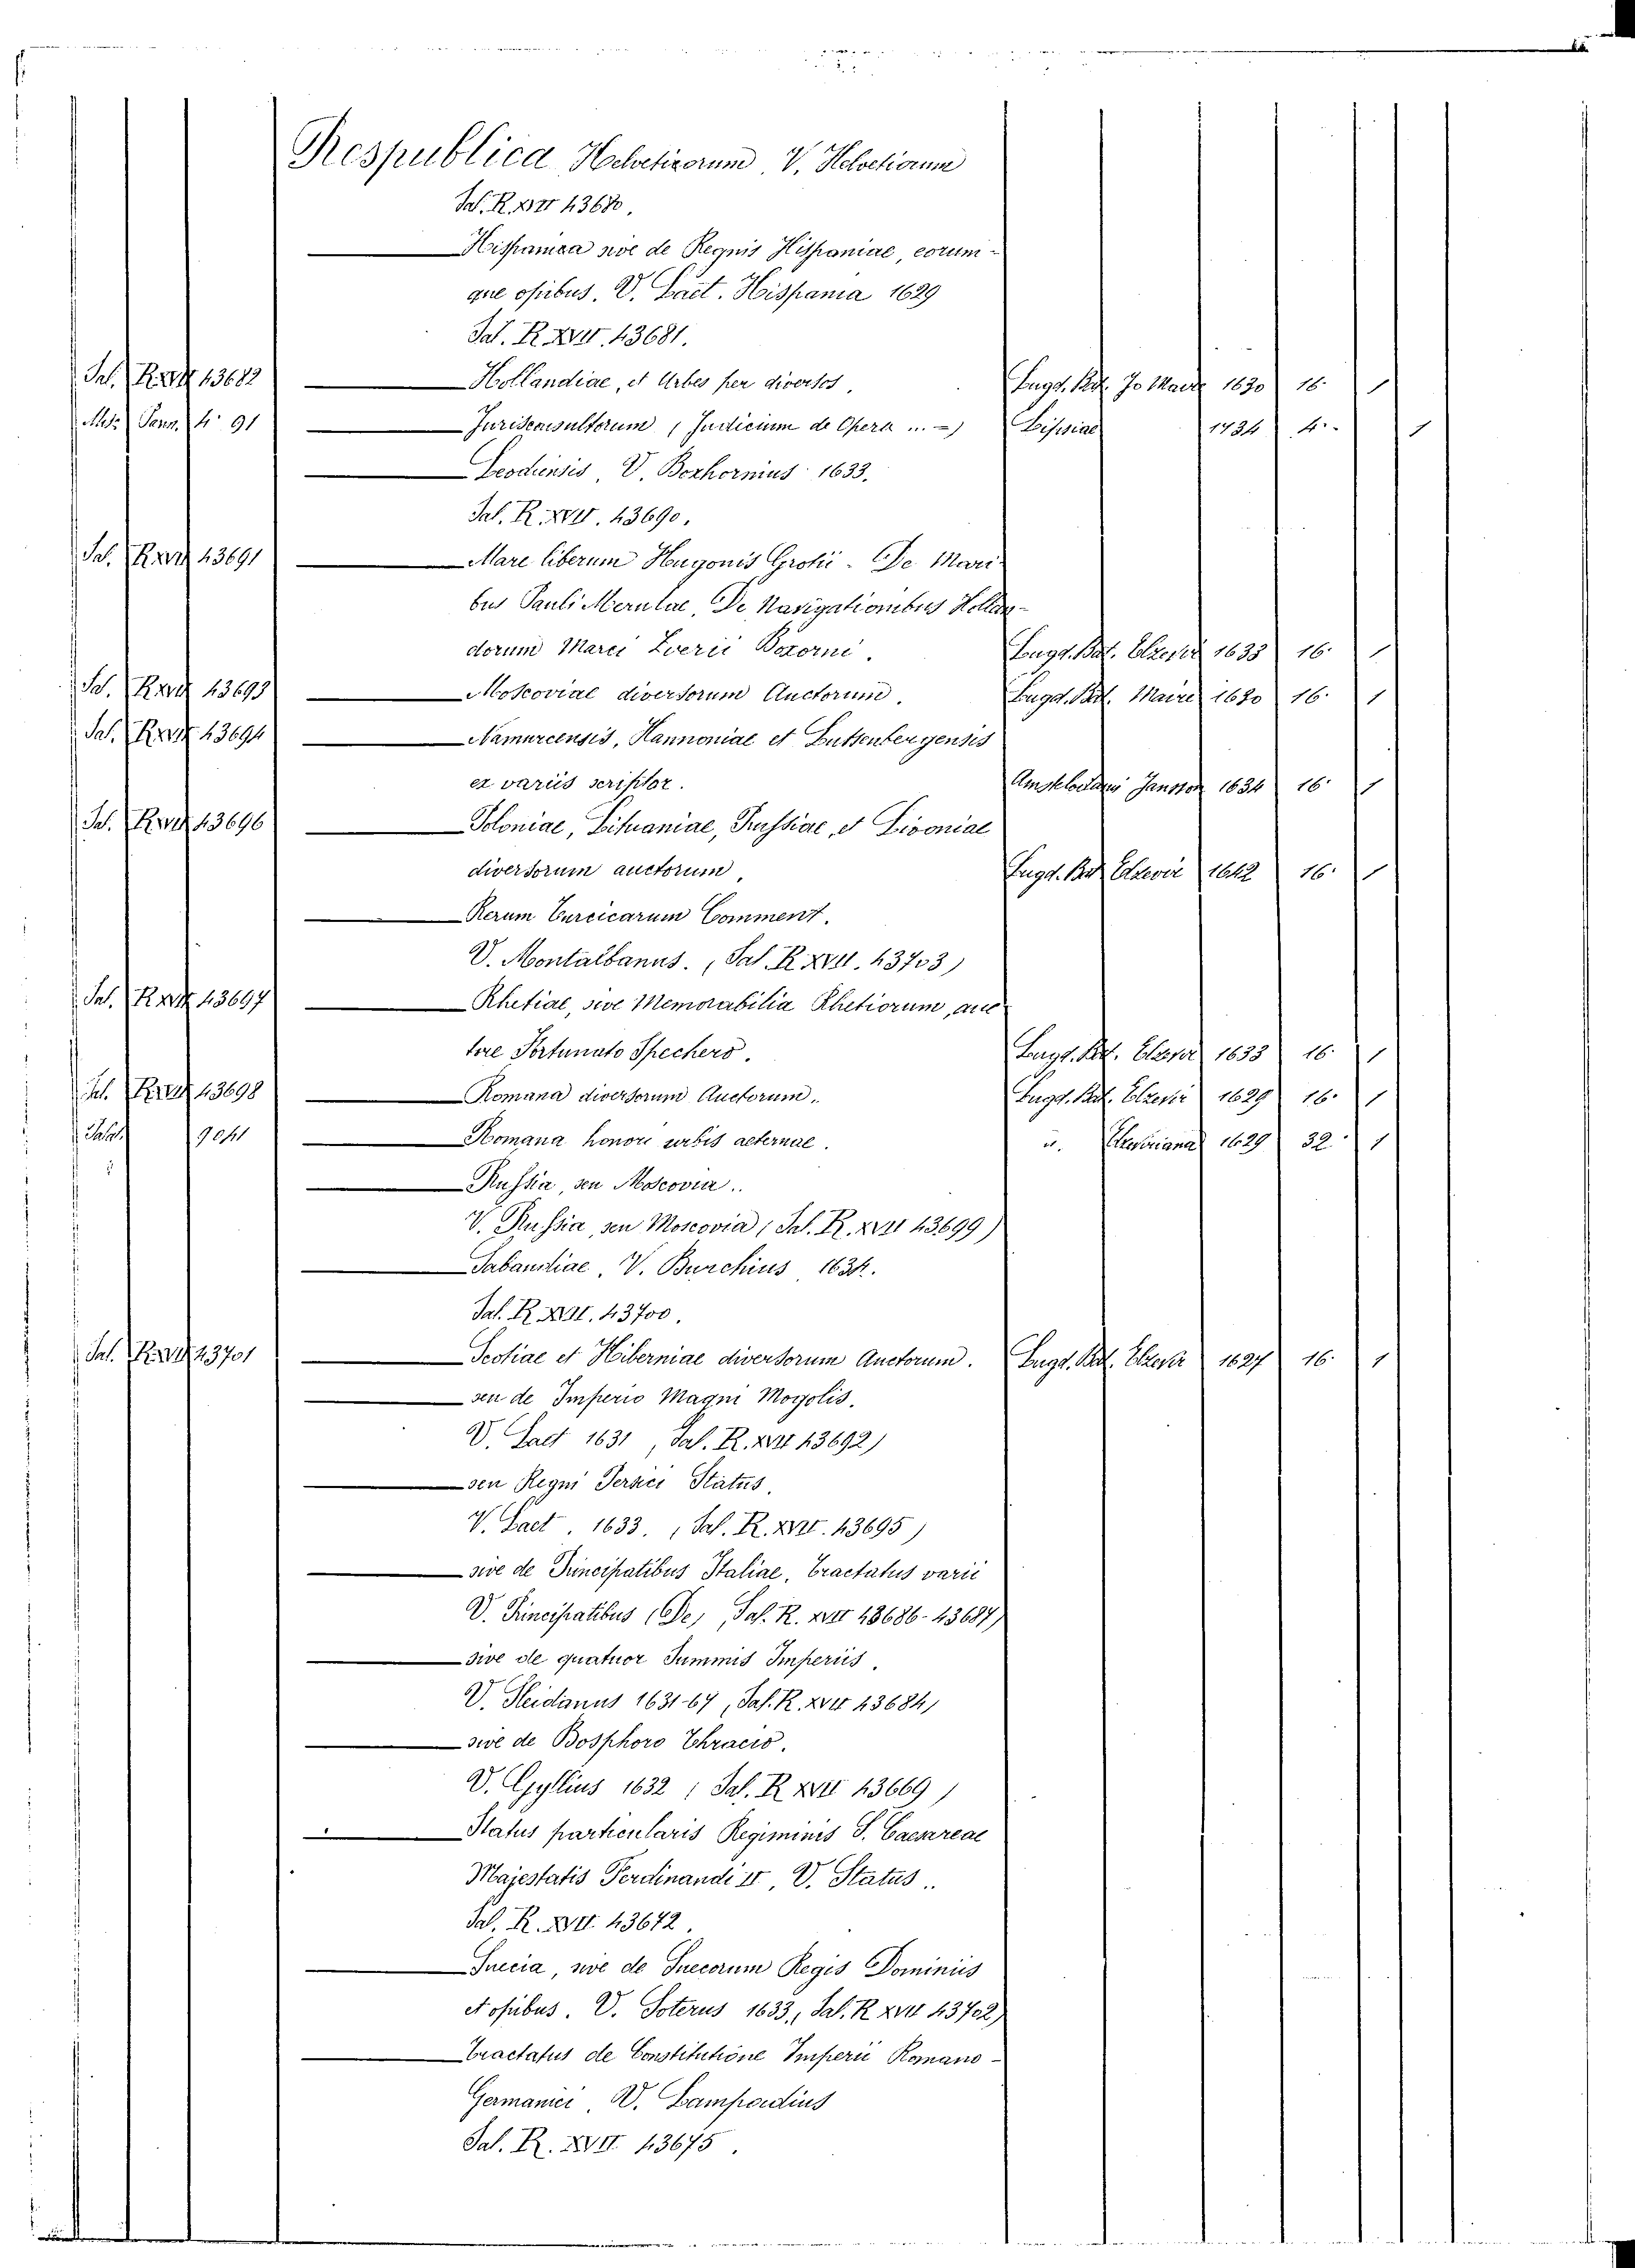 Respublica Helvetiorum, V. Helvetiorum
Sal. R. XVII 43680.
Hispanica sive de Regnis Hispaniae, eorum-
que opibus. V. Laet. Hispania 1629
Sal. R. XVII. 43681.
Sal. R. XVII 43682 Hollandiae, et Urbes per diversos. Lugd. Bat. Jo Maire 1630 16. 1
4. 91 Jurisconsultorum (Judicium de Opera ... =) Lipsiae 1734 4. 1
Leodiensis, V. Boxhornius 1633.
Sal. R. XVII. 43690.
Sal. R. XVII 43691 Mare liberum Hugonis Grotii. De Mari-
bus Pauli Merulae, De Navigationibus Hollan-
dorum Marci Zverii Boxorni. Lugd. Bat. Elzevir 1633 16. 1
Sal. R. XVII 43693 Moscoviae diversorum Auctorum. Lugd. Bat. Maire 1630 16. 1
Sal. R. XVII 43694 Namurcensis, Hannoniae et Lutsenbergensis
ex variis scriptor. Amstelodami Jansson 1634 16. 1
Sal. R. XVII 43696 Poloniae, Lituaniae, Prussiae, et Livoniae
diversorum auctorum, Lugd. Bat. Elzevir 1642 16. 1
Rerum Turcicarum Comment.
V. Montalbanus. (Sal. R. XVII. 43703)
Sal. R. XVII 43697 Rhetiae, sive Memorabilia Rhetiorum, auc-
tore Fortunato Spechero. Lugd. Bat. Elzevir 1633 16. 1
Sal. R. XVII 43698 Romana diversorum Auctorum. Lugd. Bat. Elzevir 1629 16. 1
Salat. 9041 Romana honori urbis aeternae. Elzeviriana 1629 32. 1
Russia, seu Moscovia..
V. Russia, seu Moscovia (Sal. R. XVII 43699)
Sabaudiae, V. Burchius, 1634.
Sal. R. XVII. 43700.
Sal. R. XVII 43701 Scotiae et Hiberniae diversorum Auctorum. Lugd. Bat. Elzevir 1627 16. 1
seu de Imperio Magni Mogolis.
V. Laet 1631, Sal. R. XVII 43692)
seu Regni Persici Status.
V. Laet. 1633. (Sal. R. XVII. 43695)
sive de Principatibus Italiae, Tractatus varii
V. Principatibus (De) (Sal. R. XVII 43686-43687)
sive de quatuor Summis Imperiis.
V. Sleidanus 1631-67 (Sal. R. XVII 43684)
sive de Bosphoro Thracio.
V. Gyllius 1632 (Sal. R XVII 43669)
Status particularis Regiminis S. Caesareae
Majestatis Ferdinandi II, V. Status..
Sal. R. XVII. 43672.
Suecia, sive de Suecorum Regis Dominiis
et opibus. V. Soterus 1633, (Sal. R XVII 43702)
Tractatus de Constitutione Imperii Romano-
Germanici, V. Lampadius
Sal. R. XVII. 43675.